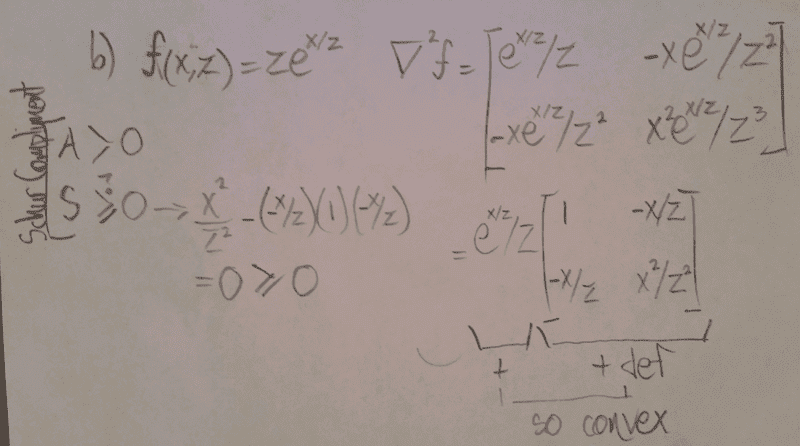 b) f(x,z) = ze^{x/z} ∇²f = [e^{x/z}/z -xe^{x/z}/z²
-xe^{x/z}/z² x²e^{x/z}/z³]
Schur Complement
A > 0
S ≥? 0 → x²/z² - (-x/z)(1)(-x/z)
= 0 ≥ 0
= e^{x/z}/z [1 -x/z
-x/z x²/z²]
+ + def
so convex